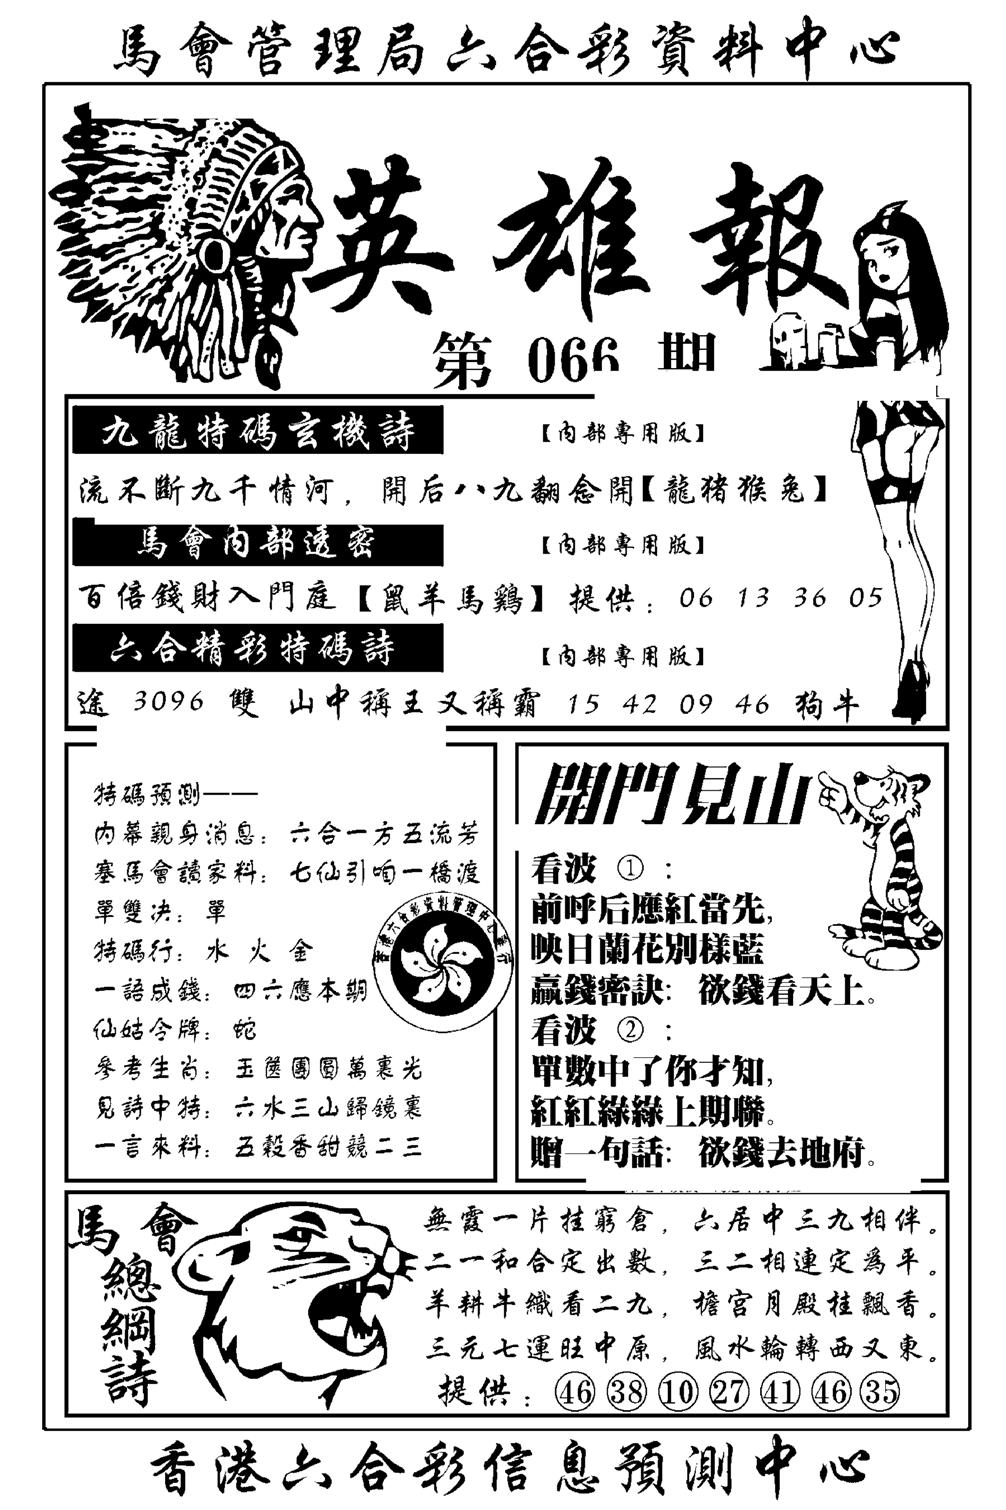 馬會管理局六合彩資料中心
英雄報
第 066 期
九龍特碼玄機詩 【内部專用版】
流不斷九千情河，開后八九翻念開【龍猪猴兔】
馬會内部透密 【内部專用版】
百倍錢財入門庭【鼠羊馬鷄】提供：06 13 36 05
六合精彩特碼詩 【内部專用版】
途 3096 雙 山中稱王又稱霸 15 42 09 46 狗牛
特碼預測——
内幕親身消息：六合一方五流芳
塞馬會讀家料：七仙引咱一橋渡
單雙决：單
特碼行：水 火 金
一語成錢：四六應本期
仙姑令牌：蛇
參考生肖：玉篋團圓萬裏光
見詩中特：六水三山歸鏡裏
一言來料：五穀香甜競二三
香港六合彩資料管理中心發行
開門見山
看波 ①：
前呼后應紅當先，
映日蘭花别樣藍
贏錢密訣：欲錢看天上。
看波 ②：
單數中了你才知，
紅紅綠綠上期聯。
贈一句話：欲錢去地府。
馬會
總綱詩
無霞一片挂窮倉，六居中三九相伴。
二一和合定出數，三二相連定爲平。
羊耕牛織看二九，檐宫月殿桂飄香。
三元七運旺中原，風水輪轉西又東。
提供：㊻ ㊳ ⑩ ㉗ ㊶ ㊻ ㉟
香港六合彩信息預測中心